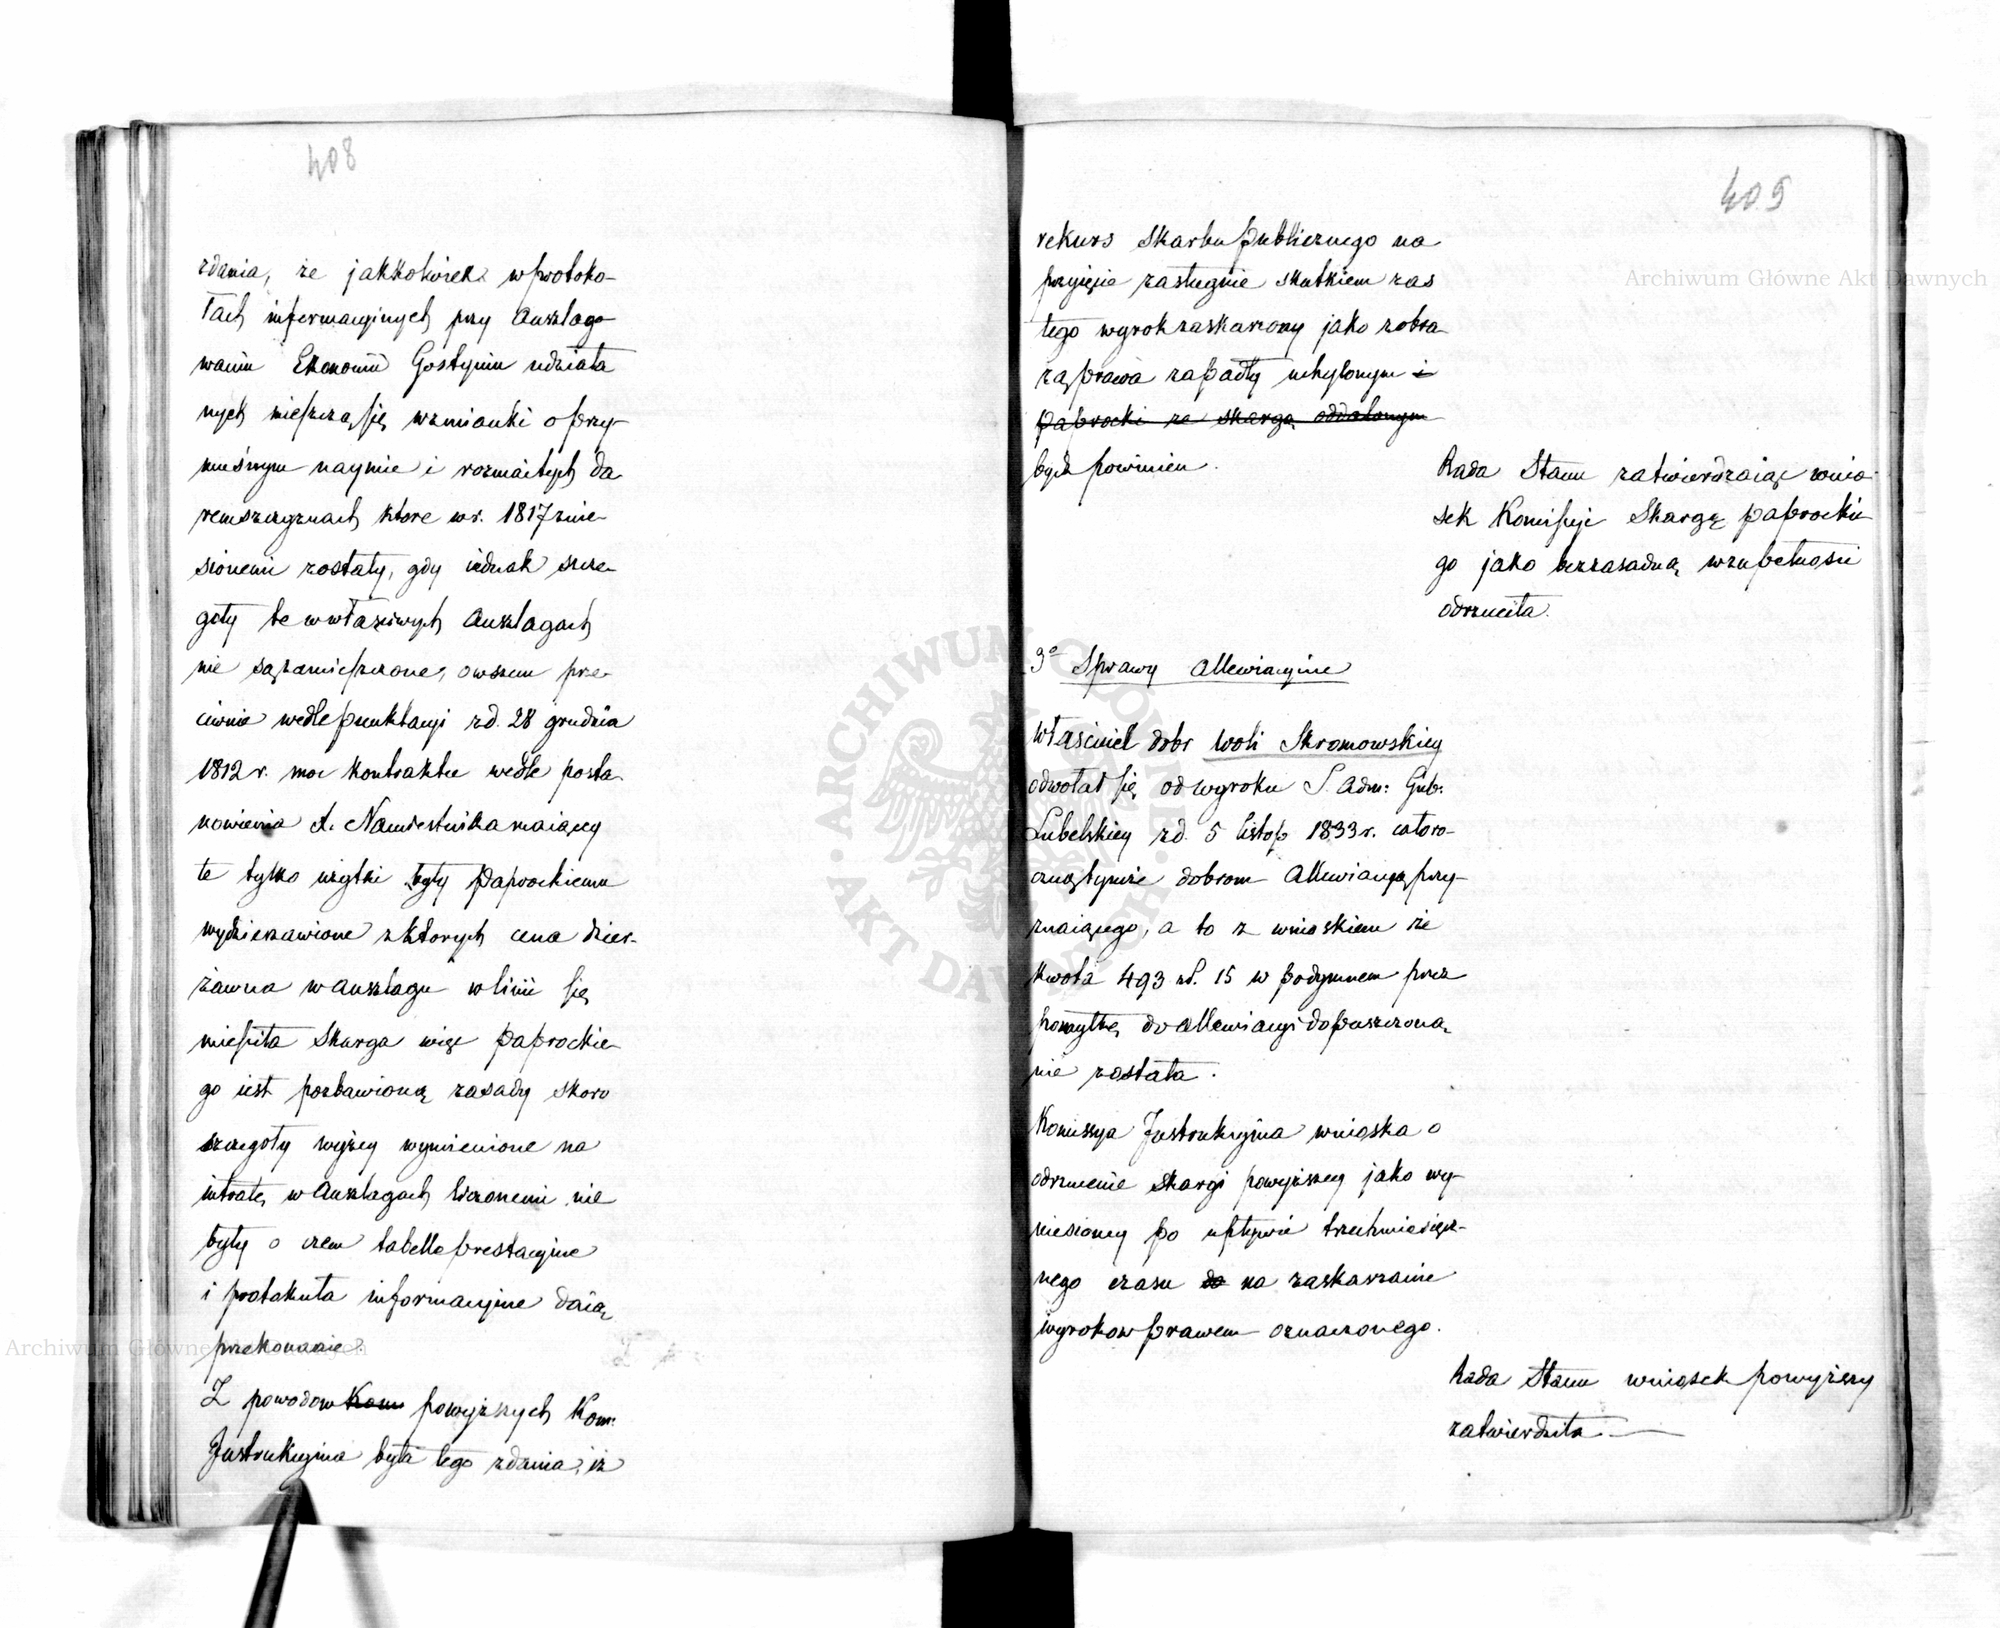 408
zdania, że jakkolwiek w protoko-
łach informacyinych przy Anszlago
waniu Ekonomii Gostynin udziała
nych mieszczą się wzmianki o przy-
muśnym naymie i rozmaitych da
remszczyznach ktore w r. 1817 znie-
sionemi zostały, gdy iednak szcze-
goły te w właściwych Anszlagach
nie są zamieszczone, owszem prze-
ciwnie wedle punktacyi z d. 28 grudnia
1812 r. moc kontraktu wedle posta-
nowienia X. Namiestnika maiącey
te tylko użytki były Paprockiemu
wydzierżawione z ktorych cena dzier-
żawna w Anszlagu w linii się
mieściła Skarga więc Paprockie-
go iest pozbawioną zasady skoro
szczegoły wyżey wymienione na
intratę w Anszlagach liczonemi nie
były o czem tabelle prestacyine
i protokuła informacyine daią
przekonanie.
Z powodow Kom powyższych Kom:
Instrukcyina była tego zdania, iż
409
rekurs Skarbu Publicznego na
przyięcie zasługuie skutkiem zas
tego wyrok zaskarżony jako z obra-
zą prawa zapadły uchylonym i
Paprocki ze skargą oddalonym
bydź powinien.
Rada Stanu zatwierdzaiąc wnio-
sek Komissyi Skargę Paprockie
go jako bezzasadną w zupełności
odrzuciła.
3º Sprawy Allewiacyine
Właściciel dobr Woli Skromowskiey
odwołał się od wyroku S. Adm: Gub:
Lubelskiey z d. 5 listop 1833 r. cztero-
znaiącego, a to z wnioskiem że
kwota 493 zł. 15 w podymnem przez
pomyłkę do allewiacyi dopuszczoną
nie została.
Komissya Instrukcyina wnioska o
odrzucenie skargi powyższey jako wy-
niesioney po upływie trzechmiesięcz-
nego czasu do na zaskarżanie
wyrokow prawem oznaczonego.
Rada Stanu wniosek powyższy
zatwierdziła.
Archiwum Główne Akt Dawnych
Archiwum Główne Akt Dawnych
ARCHIWUM GŁÓWNE AKT DAWNYCH